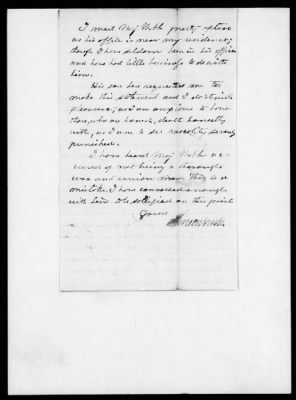 I meet Maj Webb pretty often
as his office is near my residence;
though I have seldom been in his office
and have had little business to do with
him.
His son has requested me to
make this statement and I do it with
pleasure, as I am anxious to have
those who are honest, dealt honestly
with, as I am to see rascality severely
punished.
I have heard Maj Webb ac-
cused of not being a thorough
war and union man. This is a
mistake. I have conversed enough
with him to be satisfied on this point
Yours